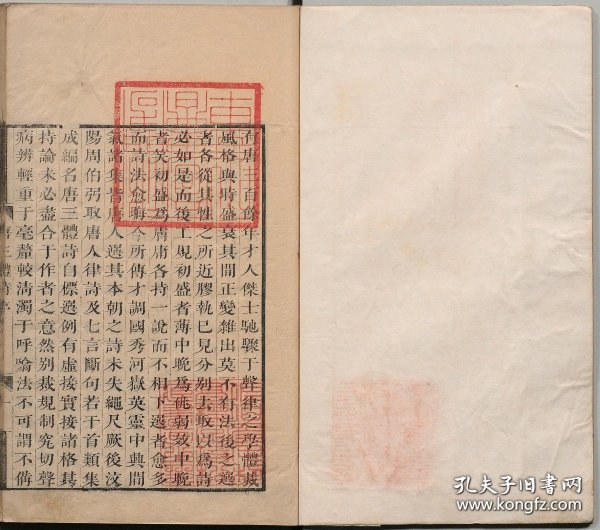 有唐三百餘年才人傑士馳驟于聲律之學體裁
風格與時盛衰其閒正變雜出莫不有法後之選
者各從其性之所近膠執已見分別去取以爲詩
必如是而後工規初盛者薄中晚爲佻弱效中晚
者笑初盛爲膚庸各持一說而不相下選者愈多
而詩法愈晦今所傳才調國秀河嶽英靈中興閒
氣諸集皆唐人選其本朝之詩未失繩尺厥後汶
陽周伯弜取唐人律詩及七言斷句若干首類集
成編名唐三體詩自標選例有虛接實接諸格其
持論未必盡合于作者之意然別裁規制究切聲
病辨輕重于毫釐較清濁于呼噏法不可謂不備
唐三體詩序
一
孔夫子旧书网
www.kongfz.com